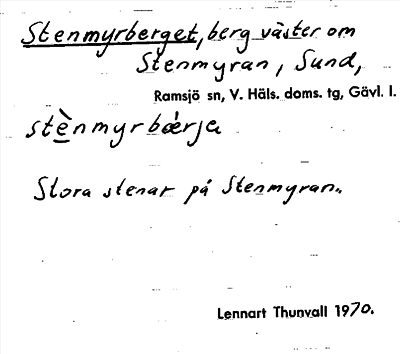 Stenmyrberget, berg väster om
Stenmyran, Sund,
Ramsjö sn, V. Häls. doms. tg, Gävl. l.
stè̱nmyrbǽrja
Stora stenar på Stenmyran.
Lennart Thunvall 1970.